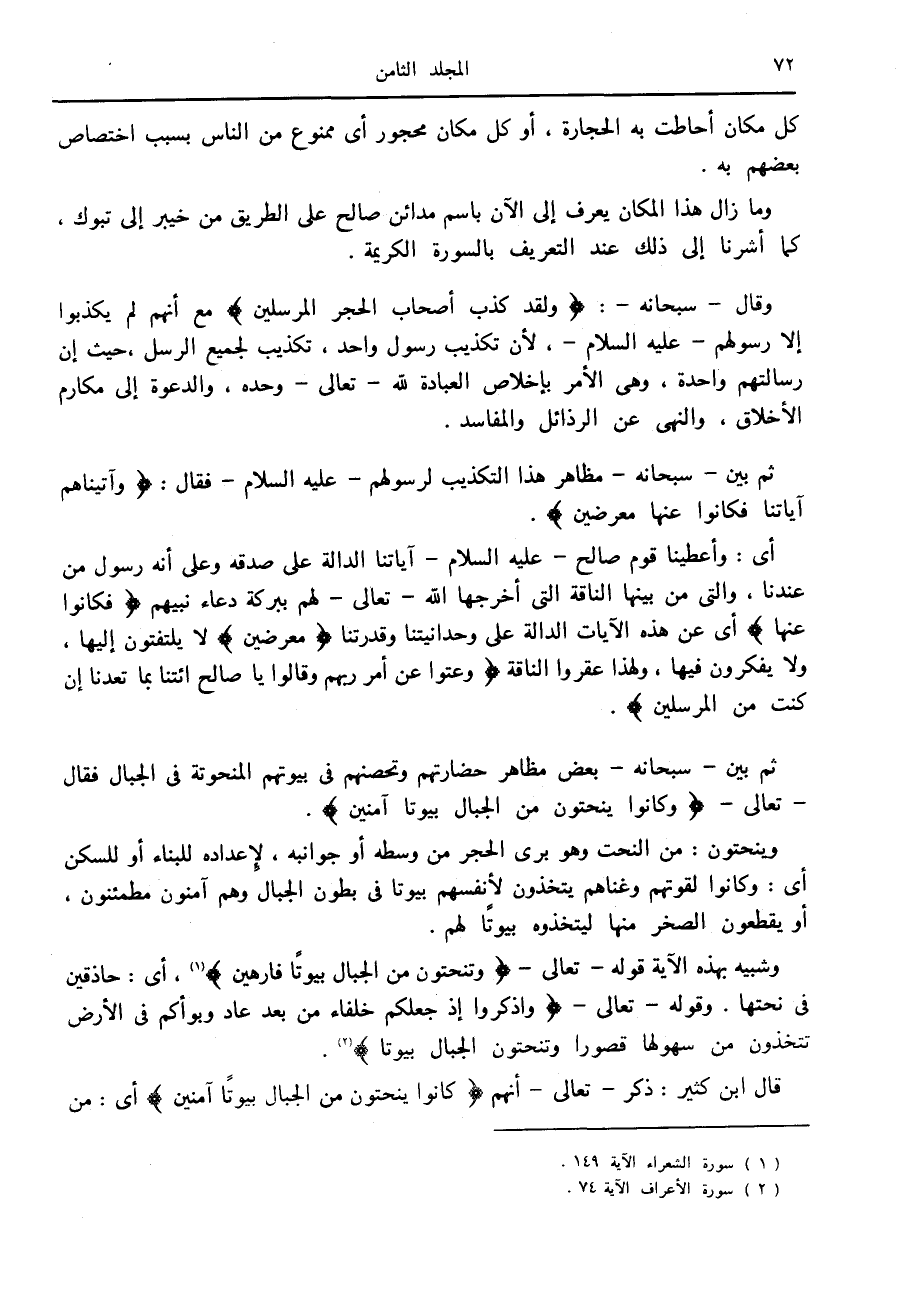 ٧٢
المجلد الثامن
كل مكان أحاطت به الحجارة ، أو كل مكان محجور أى ممنوع من الناس بسبب اختصاص
بعضهم به .
وما زال هذا المكان يعرف إلى الآن باسم مدائن صالح على الطريق من خيبر إلى تبوك ،
كما أشرنا إلى ذلك عند التعريف بالسورة الكريمة .
وقال – سبحانه – : ﴿ ولقد كذب أصحاب الحجر المرسلين ﴾ مع أنهم لم يكذبوا
إلا رسولهم – عليه السلام – ، لأن تكذيب رسول واحد ، تكذيب لجميع الرسل ،حيث إن
رسالتهم واحدة ، وهى الأمر بإخلاص العبادة لله – تعالى – وحده ، والدعوة إلى مكارم
الأخلاق ، والنهى عن الرذائل والمفاسد .
ثم بين – سبحانه – مظاهر هذا التكذيب لرسولهم – عليه السلام – فقال : ﴿ وآتيناهم
آياتنا فكانوا عنها معرضين ﴾ .
أى : وأعطينا قوم صالح – عليه السلام – آياتنا الدالة على صدقه وعلى أنه رسول من
عندنا ، والتى من بينها الناقة التى أخرجها الله – تعالى – لهم ببركة دعاء نبيهم ﴿ فكانوا
عنها ﴾ أى عن هذه الآيات الدالة على وحدانيتنا وقدرتنا ﴿ معرضين ﴾ لا يلتفتون إليها ،
ولا يفكرون فيها ، ولهذا عقروا الناقة ﴿ وعتوا عن أمر ربهم وقالوا يا صالح ائتنا بما تعدنا إن
كنت من المرسلين ﴾ .
ثم بين – سبحانه – بعض مظاهر حضارتهم وتحصنهم فى بيوتهم المنحوتة فى الجبال فقال
– تعالى – ﴿ وكانوا ينحتون من الجبال بيوتا آمنين ﴾ .
وينحتون : من النحت وهو برى الحجر من وسطه أو جوانبه ، لإعداده للبناء أو للسكن
أى : وكانوا لقوتهم وغناهم يتخذون لأنفسهم بيوتا فى بطون الجبال وهم آمنون مطمئنون ،
أو يقطعون الصخر منها ليتخذوه بيوتًا لهم .
وشبيه بهذه الآية قوله – تعالى – ﴿ وتنحتون من الجبال بيوتًا فارهين ﴾(١) ، أى : حاذقين
فى نحتها . وقوله – تعالى – ﴿ واذكروا إذ جعلكم خلفاء من بعد عاد وبوأكم فى الأرض
تتخذون من سهولها قصورا وتنحتون الجبال بيوتا ﴾(٢) .
قال ابن كثير : ذكر – تعالى – أنهم ﴿ كانوا ينحتون من الجبال بيوتًا آمنين ﴾ أى : من
( ١ ) سورة الشعراء الآية ١٤٩ .
( ٢ ) سورة الأعراف الآية ٧٤ .